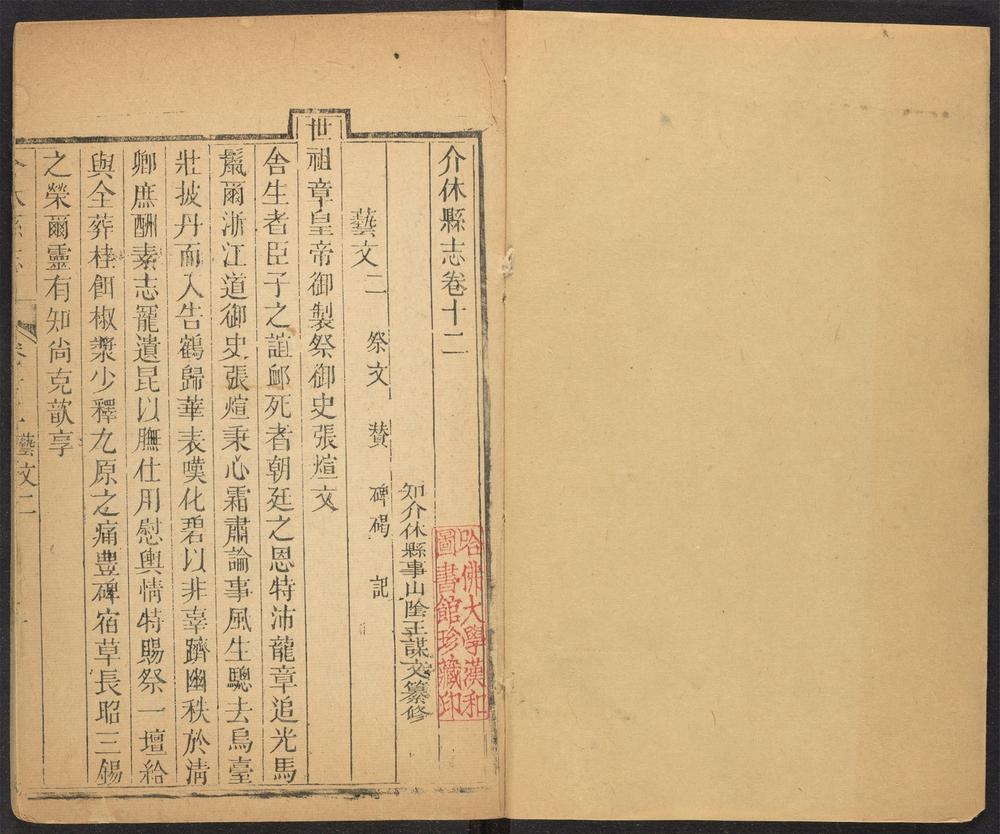 介休縣志卷十二
知介休縣事山陰王謀文纂修
藝文二 祭文 贊 碑碣 記
世祖章皇帝御製祭御史張煊文
舍生者臣子之誼卹死者朝廷之恩特沛龍章追光馬
鬣爾浙江道御史張煊秉心霜肅論事風生驄去烏臺
壯披丹而入告鶴歸華表嘆化碧以非辜躋幽秩於清
卿庶酬素志寵遺昆以膴仕用慰輿情特賜祭一壇給
與全葬桂餌椒漿少釋九原之痛豊碑宿草長昭三錫
之榮爾靈有知尚克歆享
介休縣志
藝文二
哈佛大學漢和
圖書館珍藏印